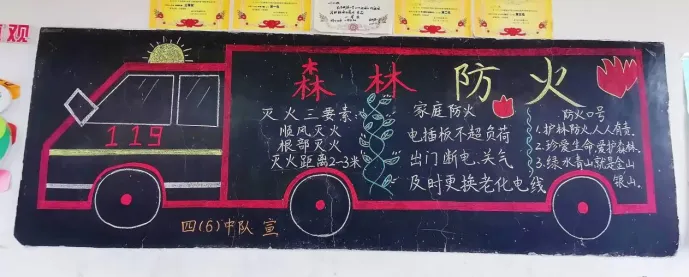 观
森林防火
119
灭火三要素
顺风灭火
根部灭火
灭火距离2-3米
家庭防火
电插板不超负荷
出门断电.关气
及时更换老化电线
防火口号
1.护林防火人人有责.
2.珍爱生命爱护森林.
3.绿水青山就是金山
银山.
四(6)中队 宣